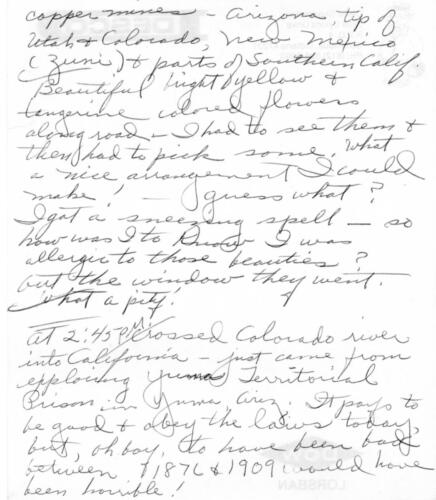 copper mines - Arizona, tip of
Utah & Colorado, New Mexico
(Zuni) & parts of Southern Calif.
Beautiful bright yellow &
tangerine colored flowers
along road - I had to see them &
then had to pick some. What
a nice arrangement I could
make! - Guess what?
I got a sneezing spell - so
how was I to know I was
allergic to those beauties?
Out the window they went.
What a pity.
At 2:45 PM crossed Colorado river
into California - just came from
exploring Yuma Territorial
Prison in Yuma, Ariz. It pays to
be good & obey the laws today,
but, oh boy, to have been bad
between 1876 & 1909 would have
been horrible!
LORSBAN